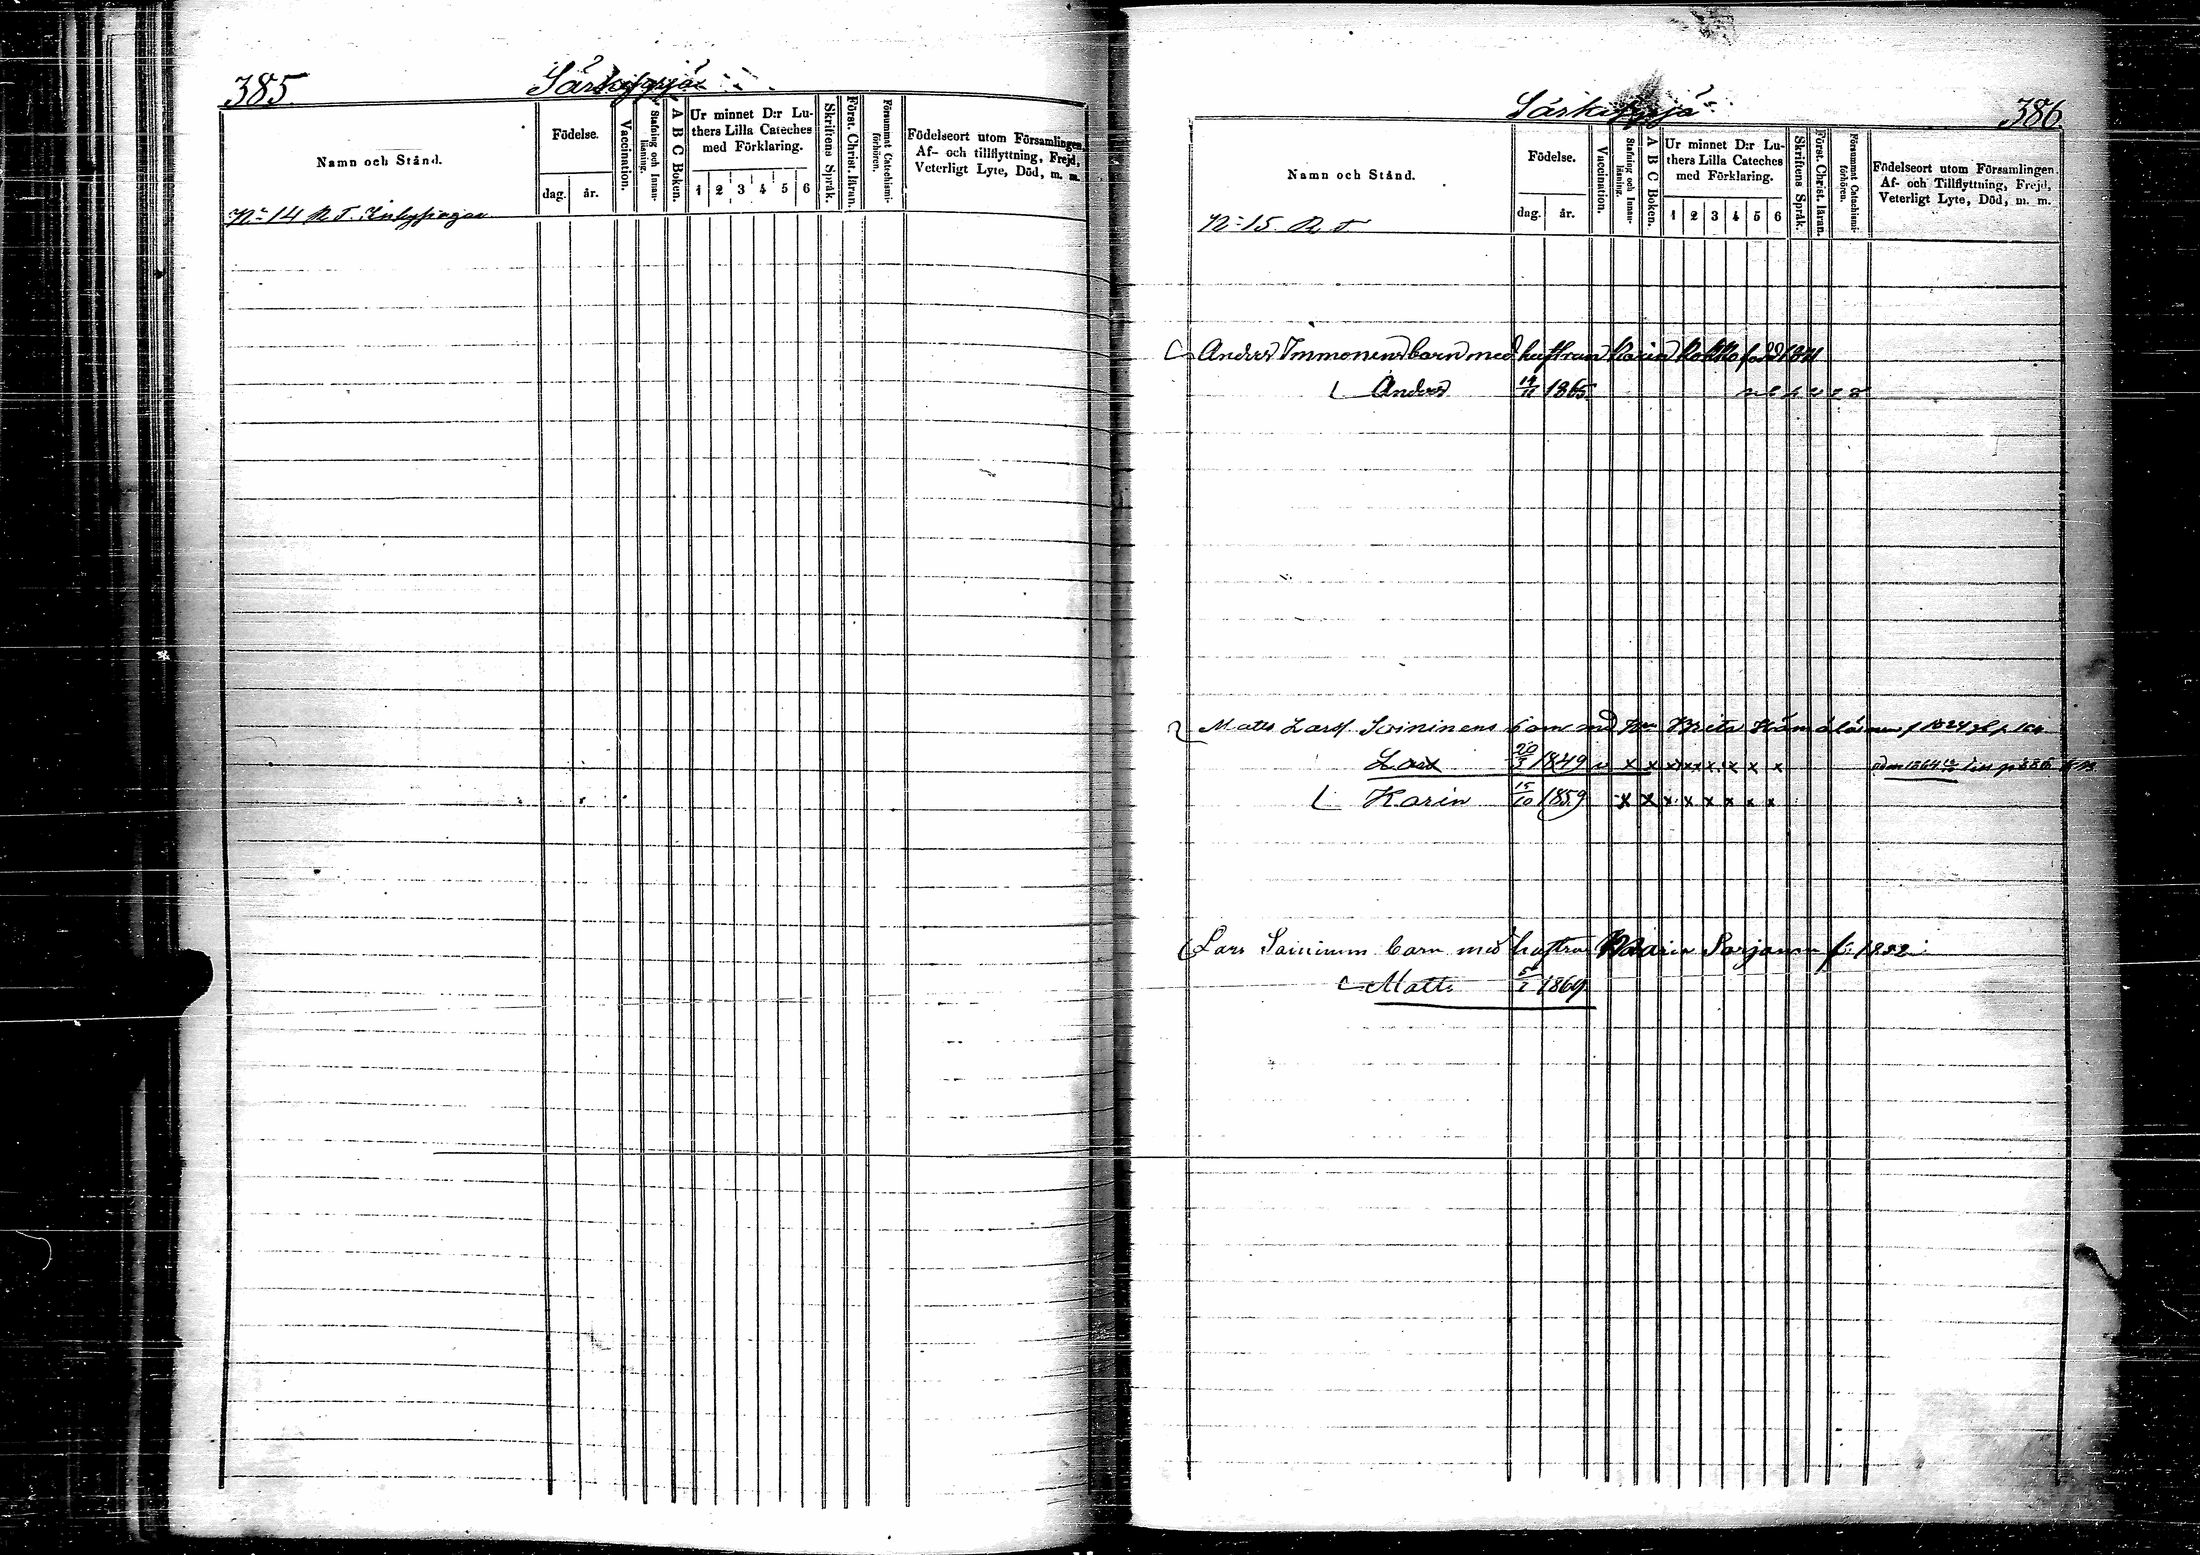 385
Namn och Stånd.
Födelse.
dag. år.
Vaccination.
Stafning och Innanläsning.
A B C Boken.
Ur minnet D:r Luthers Lilla Cateches med Förklaring.
1 2 3 4 5 6
Skriftens Språk.
Först. Christ. läran.
Försummat Catechismiförhören.
Födelseort utom Församlingen.
Af- och tillflyttning, Frejd,
Veterligt Lyte, Död, m. m.
N:o 14 R T.
386
Namn och Stånd.
Födelse.
dag. år.
Vaccination.
Stafning och Innanläsning.
A B C Boken.
Ur minnet D:r Luthers Lilla Cateches med Förklaring.
1 2 3 4 5 6
Skriftens Språk.
Först. Christ. läran.
Försummat Catechismiförhören.
Födelseort utom Församlingen.
Af- och Tillflyttning, Frejd,
Veterligt Lyte, Död, m. m.
N:o 15. R T
Anders Immonens barn med hustrun Karin född 1841
Anders 1865
Matts Larss. Soininens barn med Brita
Lars 20/3 1849 x x x x x x x x
Karin 15/10 1859 x x x x x x x x
Lars Soininen barn med hustrun Maria Sorjonen f. 1832
Matts 1869